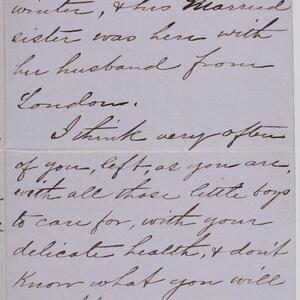 winter, & his Married
sister was here with
her husband from
London.
I think very often
of you, left, as you are,
with all those little boys
to care for, with your
delicate health, & don't
know what you will